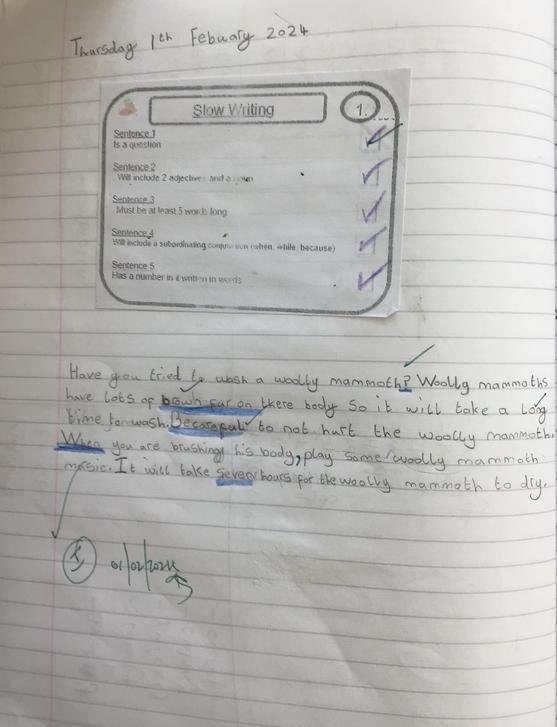 Thursday 1th Febuary 2024
Slow Writing
1.
Sentence 1
Is a question
Sentence 2
Will include 2 adjectives and a noun
Sentence 3
Must be at least 5 words long
Sentence 4
Will include a subordinating conjunction (when, while, because)
Sentence 5
Has a number in it written in words
Have you tried to wash a woolly mammoth? Woolly mammoths
have lots of brown fur on there body So it will take a long
time for wash. Be carefull to not hurt the woolly mammoth.
When you are brushing his body, play some woolly mammoth
music. It will take seven hours for the woolly mammoth to dry.
01/02/2024